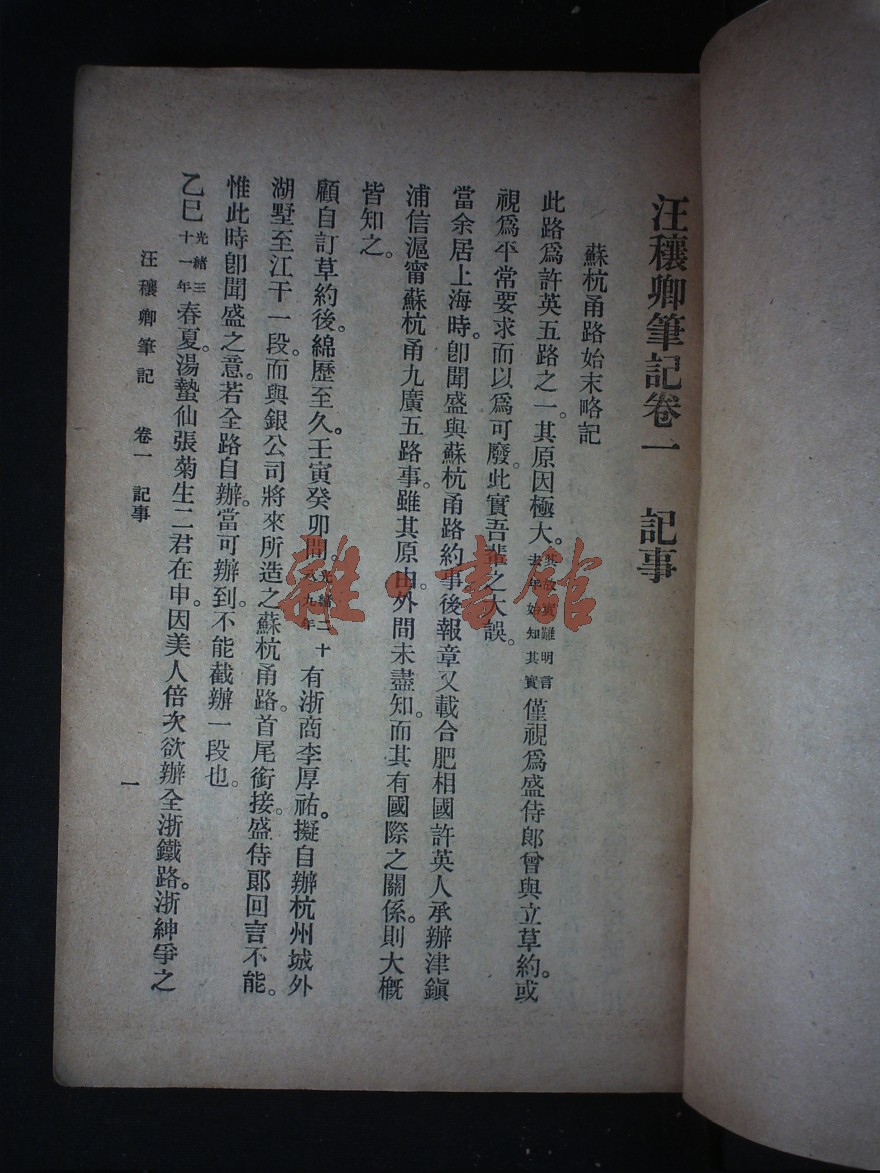 汪穰卿筆記卷一　記事
蘇杭甬路始末略記
此路爲許英五路之一。其原因極大。其故實難明言去年始知其實僅視爲盛侍郎曾與立草約。或
視爲平常要求而以爲可廢。此實吾輩之大誤。
當余居上海時。卽聞盛與蘇杭甬路約事後報章又載合肥相國許英人承辦津鎮
浦信滬甯蘇杭甬九廣五路事雖其原由外間未盡知。而其有國際之關係。則大槪
皆知之。
顧自訂草約後。綿歷至久。壬寅癸卯間。光緒二十八九年有浙商李厚祐。擬自辦杭州城外
湖墅至江干一段。而與銀公司將來所造之蘇杭甬路。首尾銜接。盛侍郎回言不能。
惟此時卽聞盛之意。若全路自辦。當可辦到。不能截辦一段也。
乙巳光緒三十一年春夏。湯蟄仙張菊生二君在申。因美人倍次欲辦全浙鐵路。浙紳爭之
汪穰卿筆記　卷一　記事
一
雜·書館